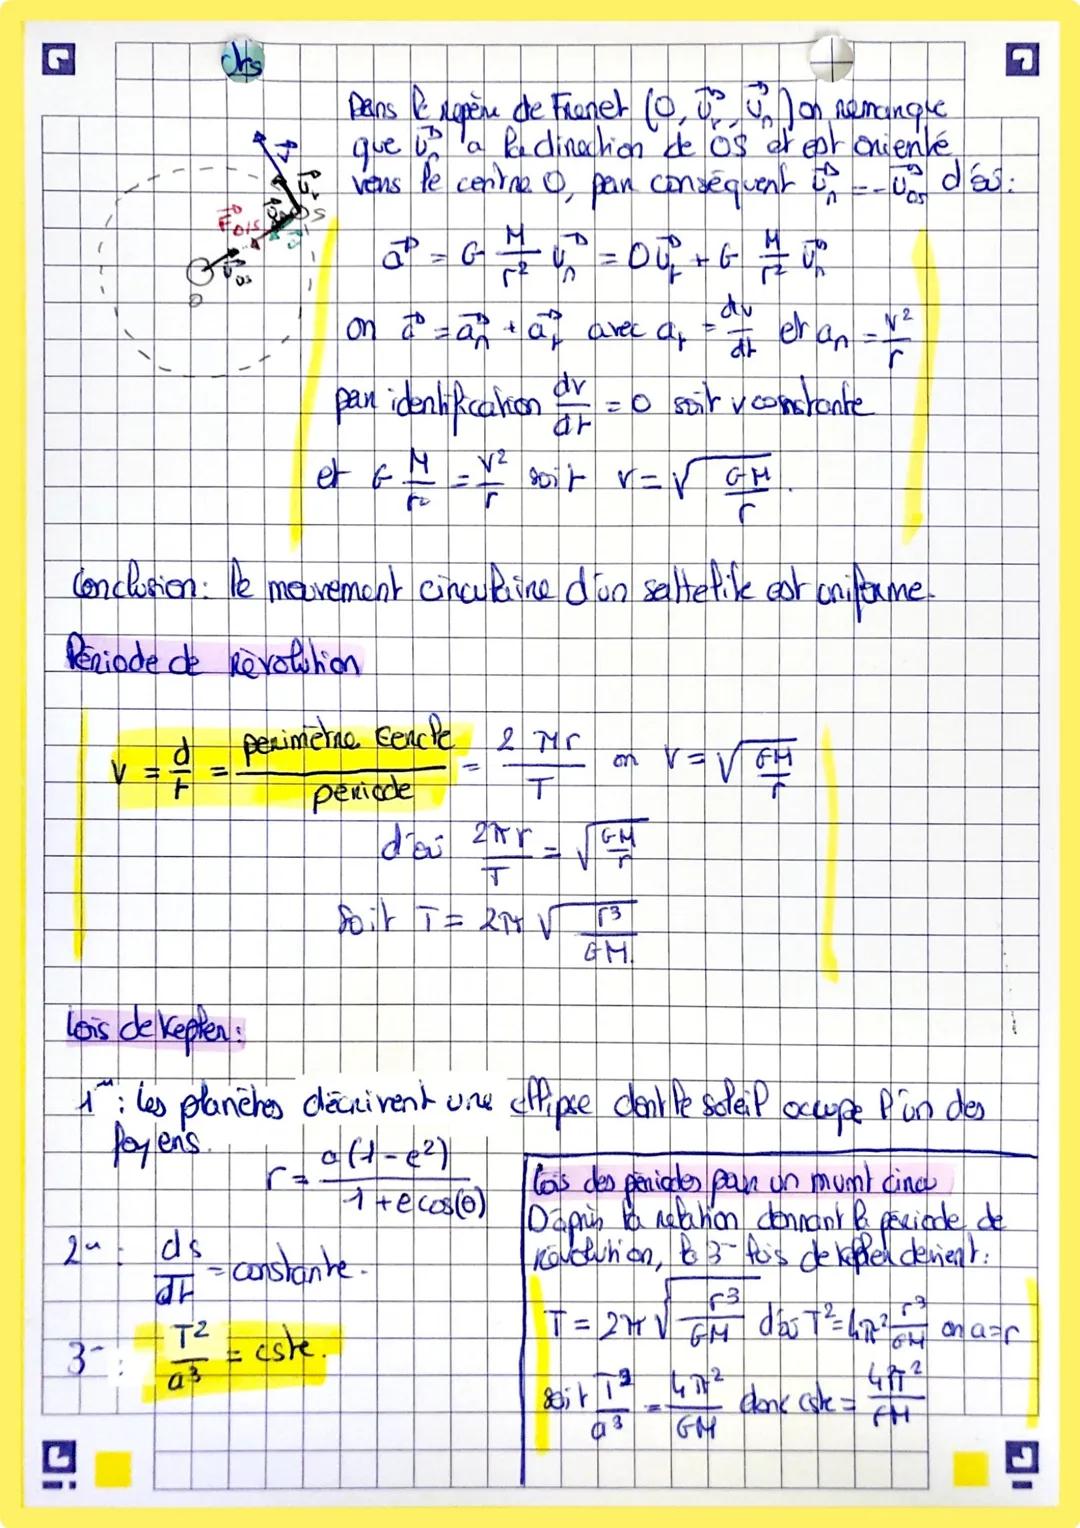 Dans le repère de Frenet (O, u⃗t, u⃗n) on remarque
que u⃗n a la direction de OS et est orienté
vers le centre O, par conséquent u⃗n = - u⃗os d'où :
a⃗ = G M/r² u⃗n = 0 u⃗t + G M/r² u⃗n
or a⃗ = a⃗n + a⃗t avec at = dv/dt et an = v²/r
par identification dv/dt = 0 soit v constante
et G M/r² = v²/r soit v = √(GM/r).
F⃗o/s
u⃗os
O
S
Conclusion : le mouvement circulaire d'un sattelite est uniforme.
Période de révolution
v = d/t = perimètre cercle/période = 2πr/T or v = √(GM/r)
d'où 2πr/T = √(GM/r)
soit T = 2π √(r³/GM).
Lois de Kepler :
1re : Les planètes décrivent une ellipse dont le soleil occupe l'un des
foyers.
r = a(1-e²)/(1+e cos(θ))
2e : ds/dt = constante.
3e : T²/a³ = cste.
Lois des périodes par un mvmt circ
D'après la relation donnant la période de
révolution, la 3e lois de kepler devient :
T = 2π √(r³/GM) d'où T² = 4π² r³/GM or a=r
soit T²/a³ = 4π²/GM donc cste = 4π²/GM